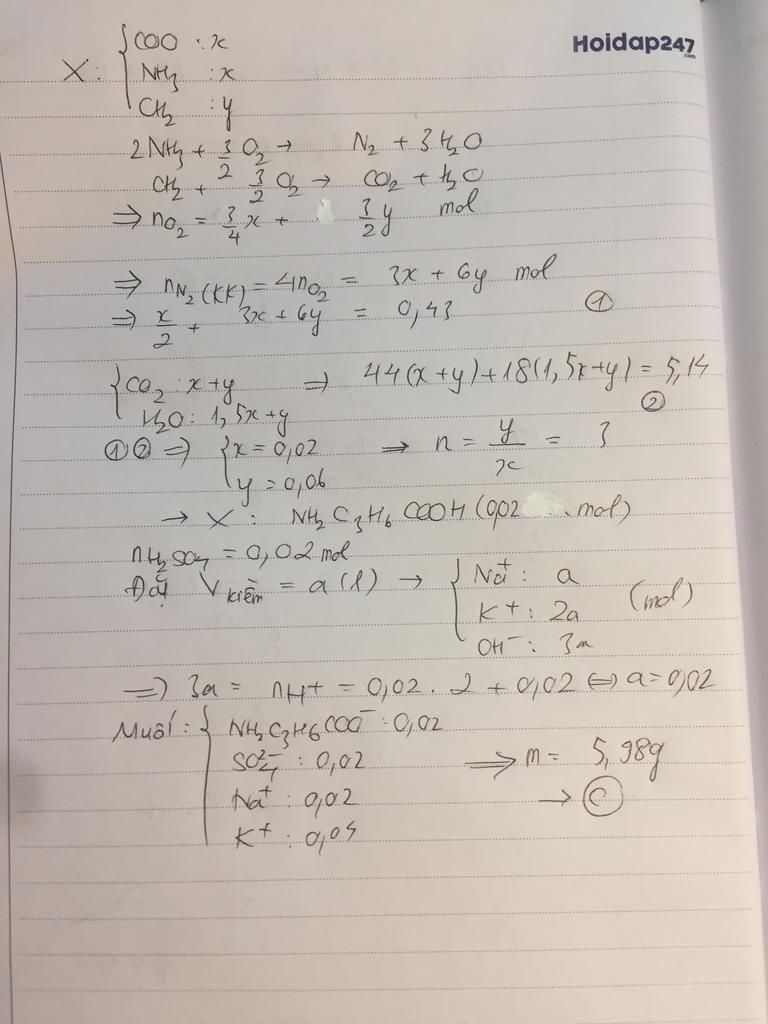 Hoidap247
.com
X: { COO : x
NH₃ : x
CH₂ : y
2NH₃ + 3/2 O₂ → N₂ + 3H₂O
CH₂ + 3/2 O₂ → CO₂ + H₂O
⇒ nO₂ = 3/4 x + 3/2 y mol
⇒ nN₂(KK) = 4nO₂ = 3x + 6y mol
⇒ x/2 + 3x + 6y = 0,43 ①
{ CO₂ : x+y ⇒ 44(x+y)+18(1,5x+y) = 5,14
H₂O : 1,5x+y ②
①② ⇒ { x = 0,02 → n = y/x = 3
y = 0,06
→ X : NH₂C₃H₆COOH (0,02 mol)
nH₂SO₄ = 0,02 mol
Đặt V kiềm = a (l) → { Na⁺ : a
K⁺ : 2a (mol)
OH⁻ : 3a
⇒ 3a = nH⁺ = 0,02 . 2 + 0,02 ⇔ a = 0,02
Muối : { NH₂C₃H₆COO⁻ : 0,02
SO₄²⁻ : 0,02 ⇒ m = 5,98g
Na⁺ : 0,02 → Ⓒ
K⁺ : 0,04